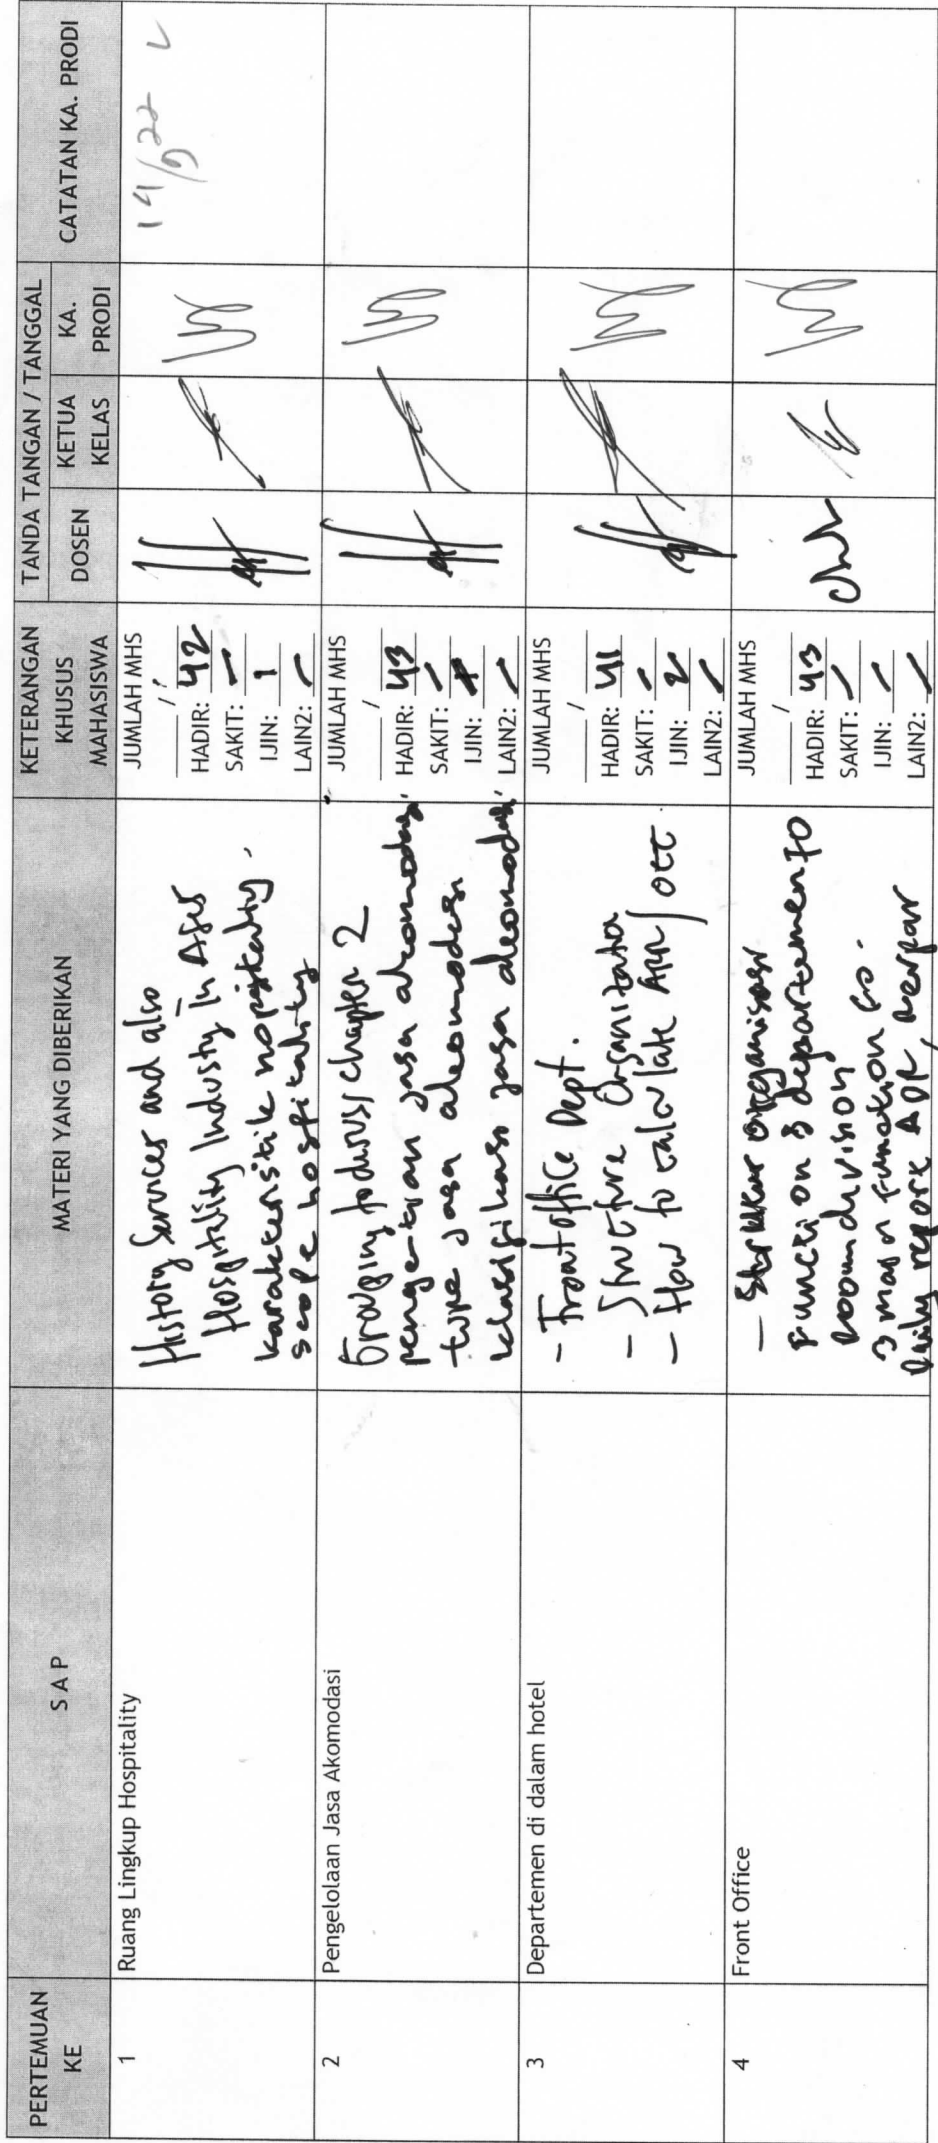 PERTEMUAN KE
S A P
MATERI YANG DIBERIKAN
KETERANGAN KHUSUS MAHASISWA
TANDA TANGAN / TANGGAL
DOSEN
KETUA KELAS
KA. PRODI
CATATAN KA. PRODI
1
Ruang Lingkup Hospitality
History Services and also
Hospitality Industry In
karakteristik hospitality.
scope hospitality
JUMLAH MHS
/
HADIR: 42
SAKIT: -
IJIN: 1
LAIN2: -
2
Pengelolaan Jasa Akomodasi
Grouping chapter 2
pengertian jasa akomodasi
type jasa akomodasi
klasifikasi jasa akomodasi
JUMLAH MHS
/
HADIR: 43
SAKIT: -
IJIN:
LAIN2: -
3
Departemen di dalam hotel
- Front office Dept.
- Structure
- How to calculate ARR / occ
JUMLAH MHS
/
HADIR: 41
SAKIT: -
IJIN: 2
LAIN2: -
4
Front Office
- organisasi
Function departemen FO
room division
function FO.
report
JUMLAH MHS
/
HADIR: 43
SAKIT: -
IJIN: -
LAIN2: -